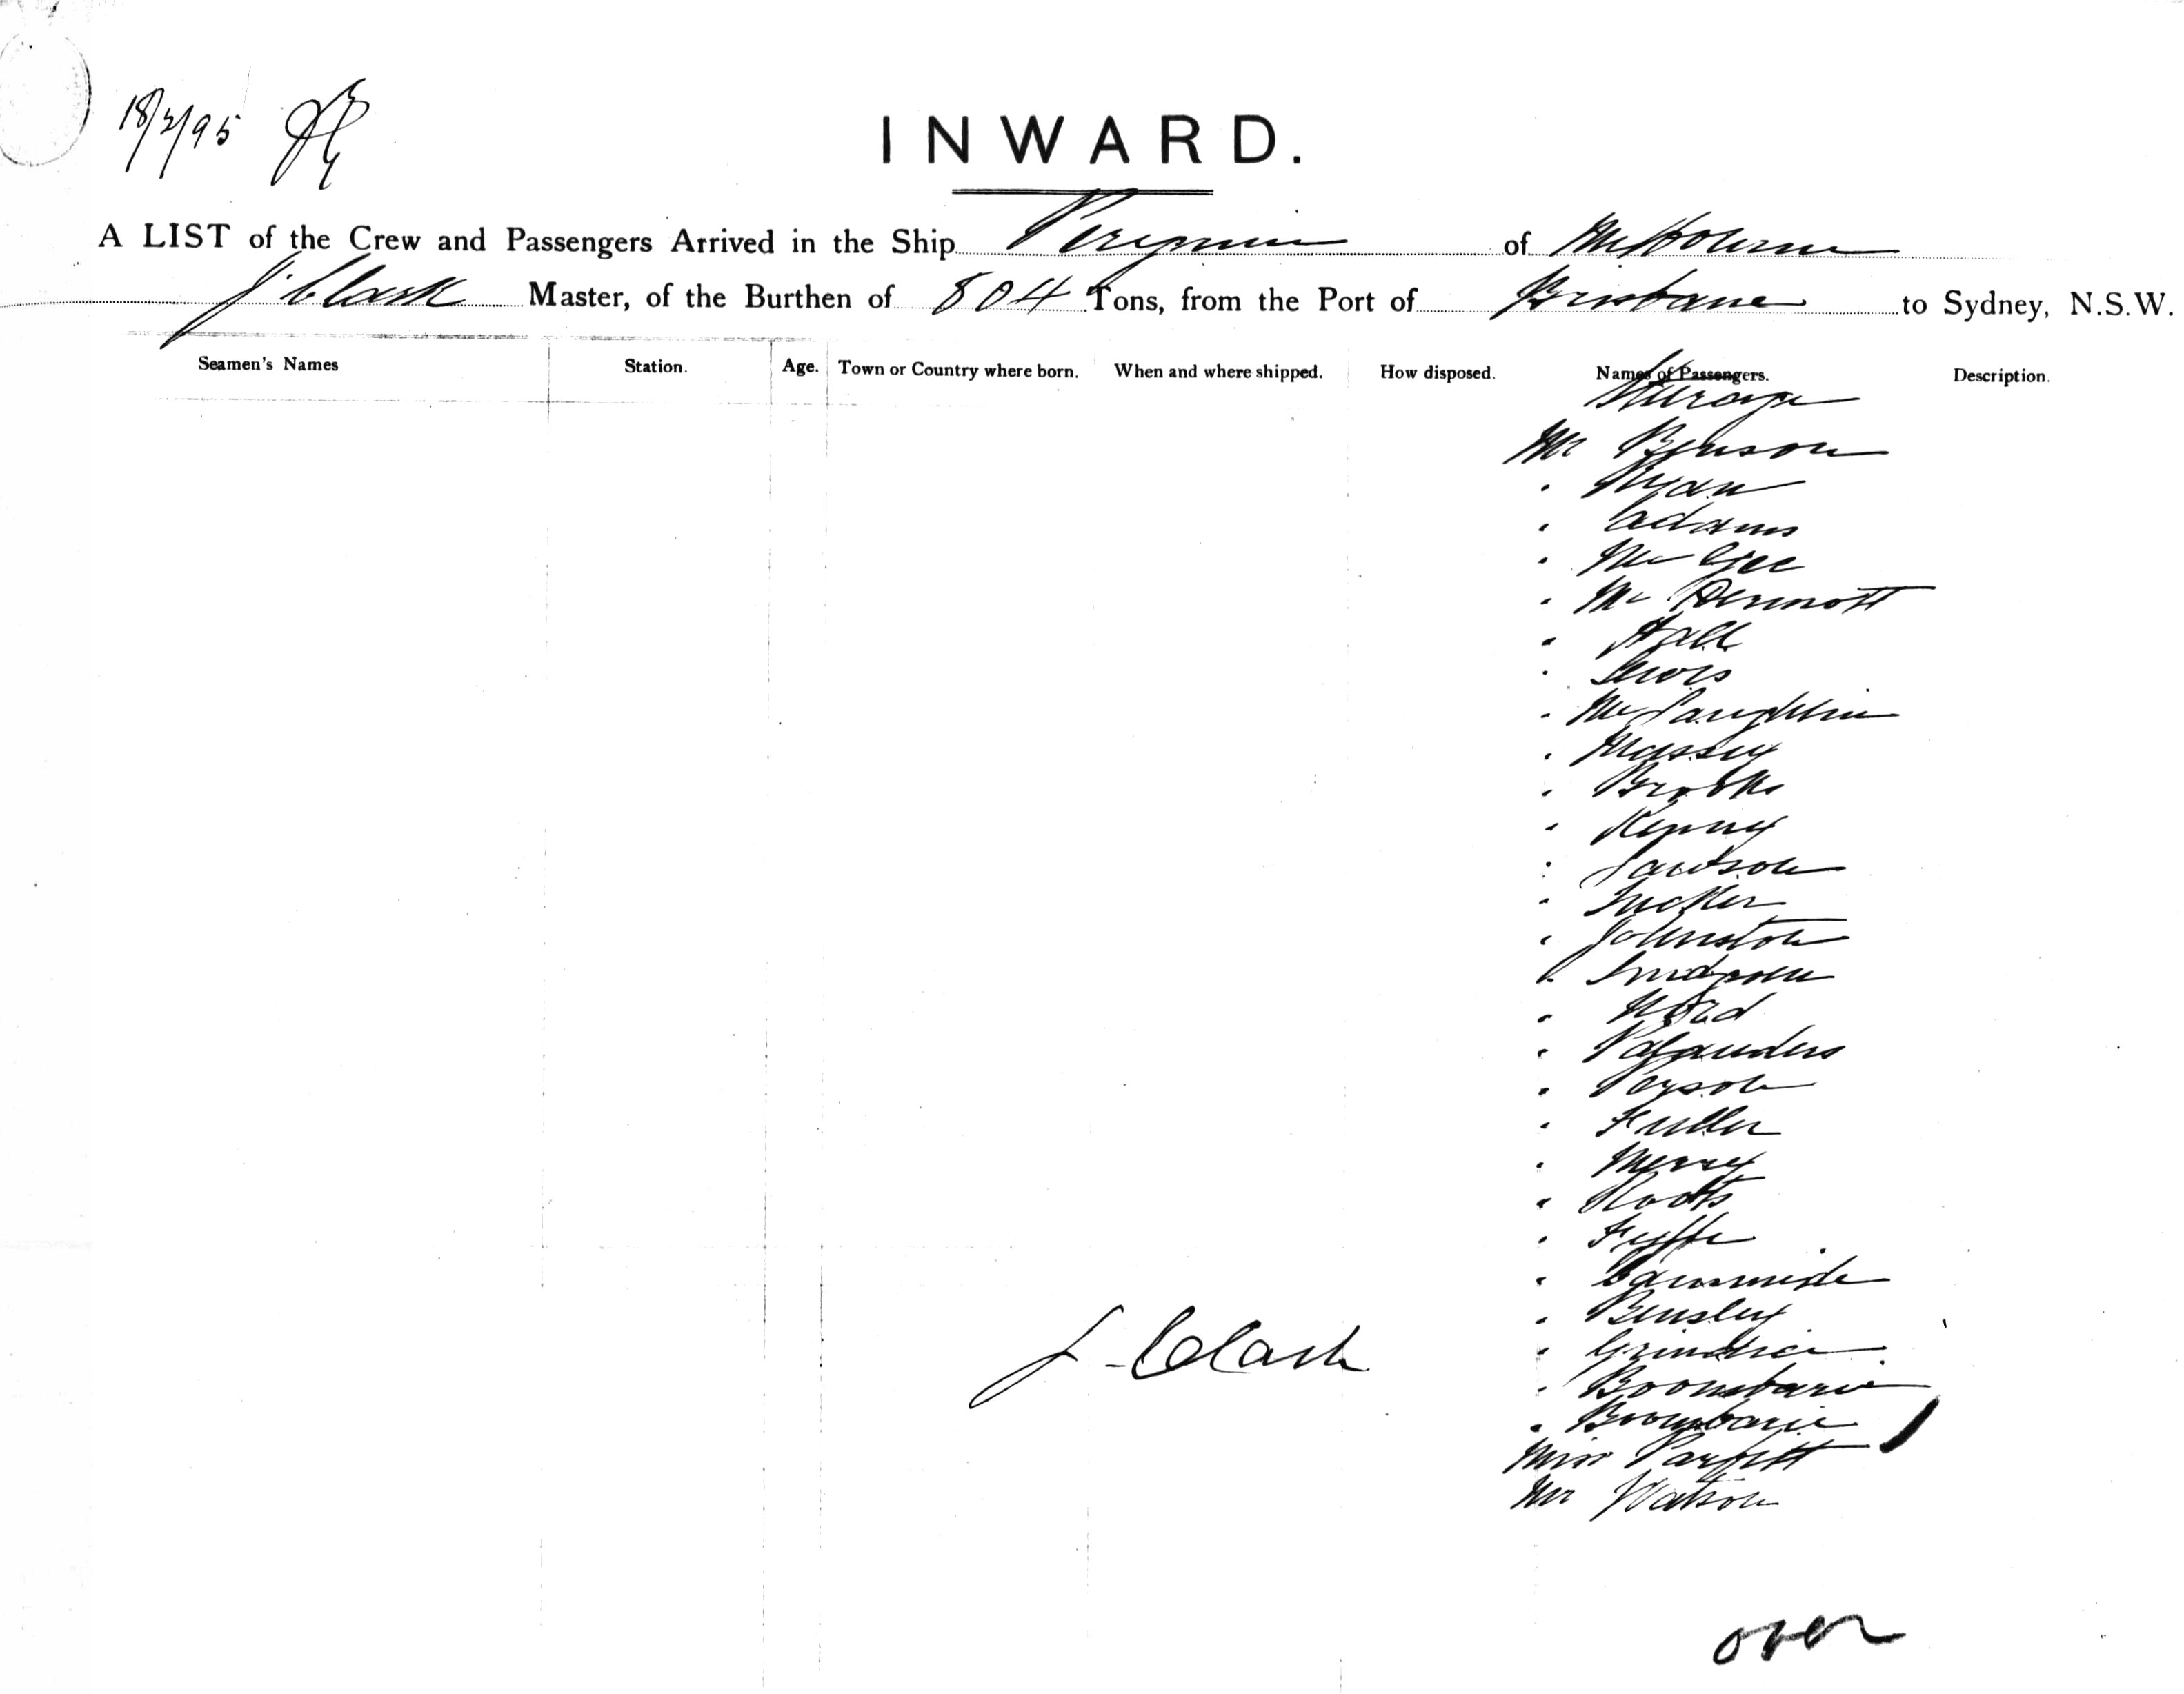 18/2/95
INWARD.
A LIST of the Crew and Passengers Arrived in the Ship Peregrine of Melbourne
J. Clark Master, of the Burthen of 804 Tons, from the Port of Brisbane to Sydney, N.S.W.
Seamen's Names Station. Age. Town or Country where born. When and where shipped. How disposed. Names of Passengers. Description.
Steerage
Mr Benson
" Ryan
" Adams
" McGee
" McDermott
" Hall
" Lewis
" McLaughlin
" Massey
" Brooks
" Kenny
" Lawson
" Tucker
" Johnston
" Simpson
" Ward
"
"
" Fuller
"
"
" Fyffe
"
" Bensley
"
"
"
Miss Parfitt
Mr Watson
J. Clark
over